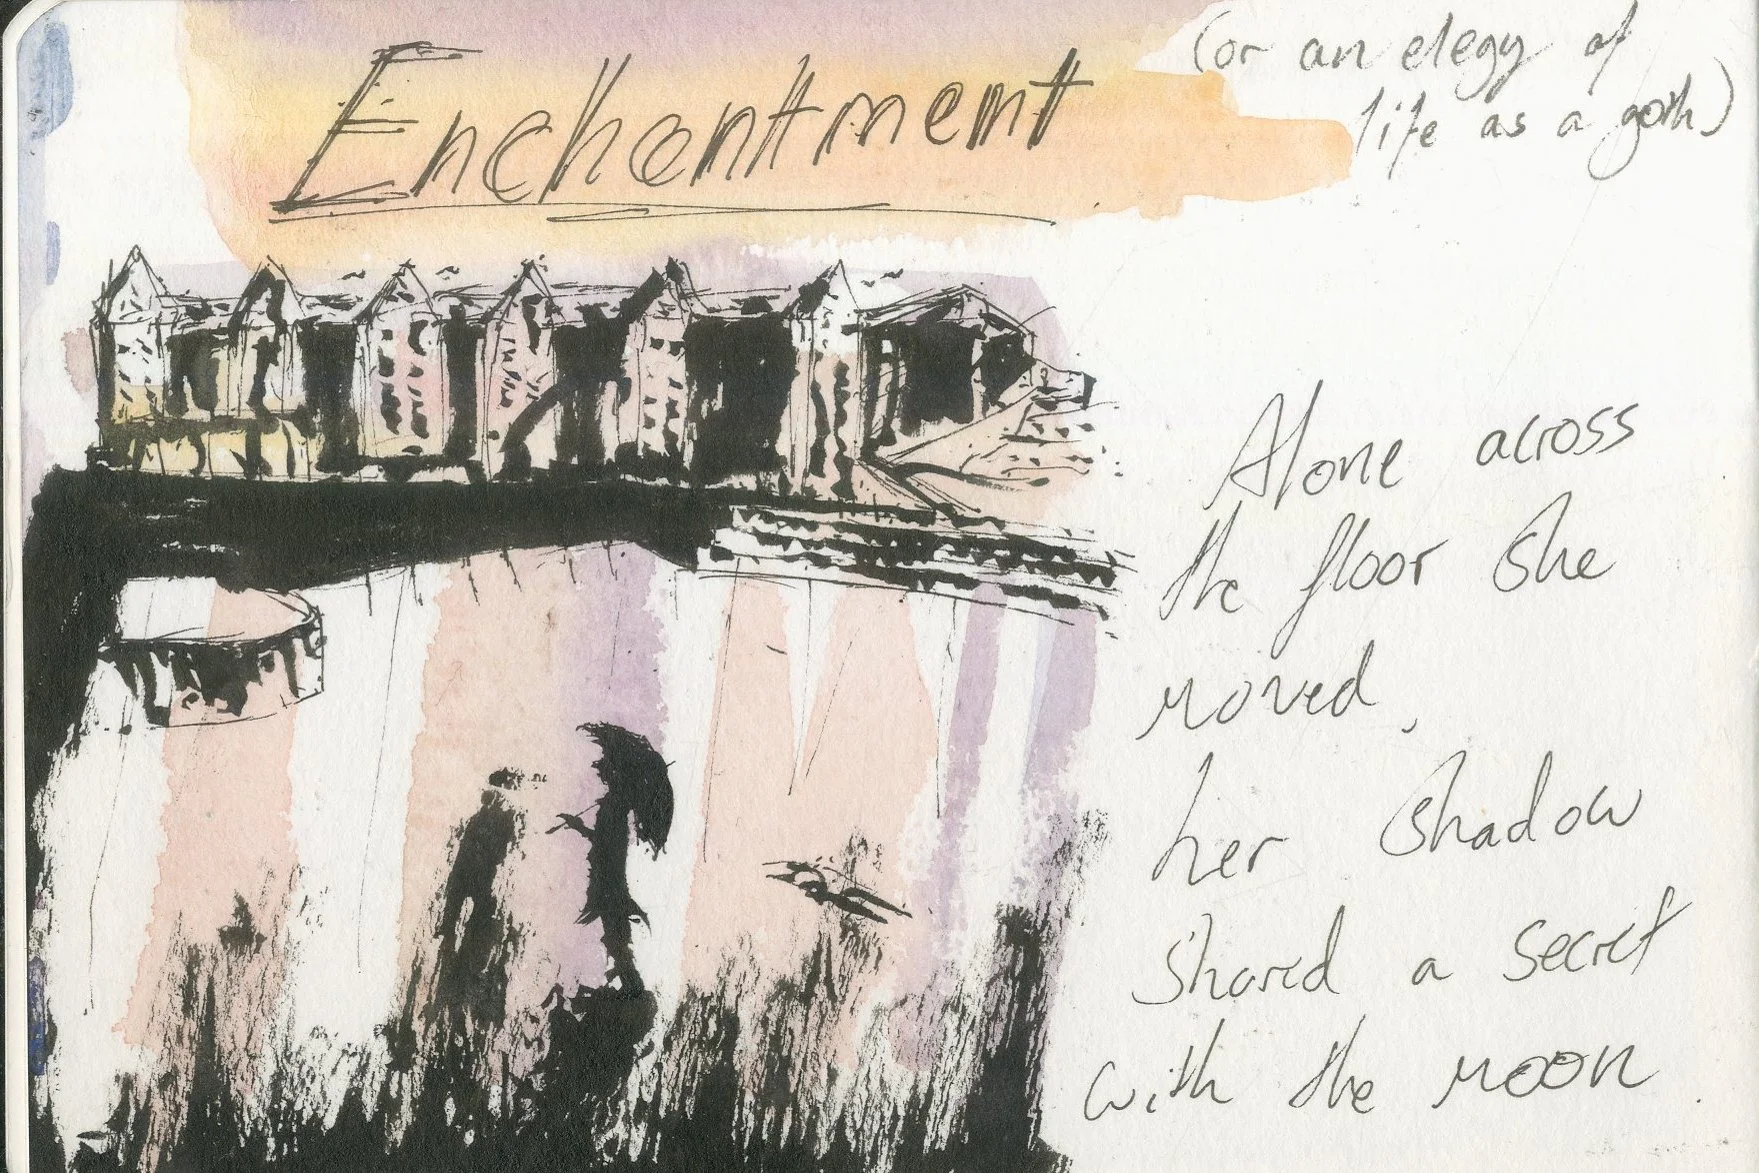 Enchantment
(or an elegy of
life as a goth)
Alone across
the floor she
moved,
her shadow
shared a secret
with the moon.